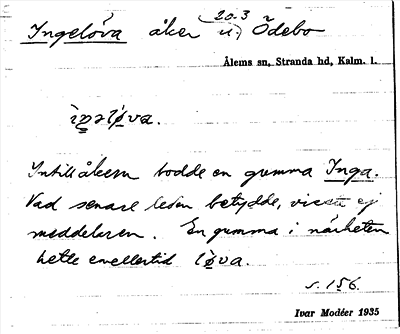 20.3
Ingelöva åker u. Ödebo
Ålems sn, Stranda hd, Kalm. l.
ìŋəlø̀va.
Intill åkern bodde en gumma Inga.
Vad senare leden betydde, visste ej
meddelaren. En gumma i närheten
hette emellertid lø̀va.
s. 156.
Ivar Modéer 1935